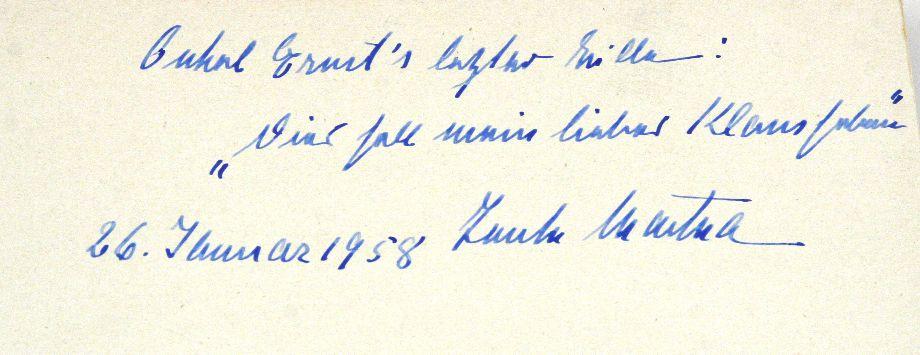 Onkel Ernst's letzter Wille:
„Dies soll mein lieber Klaus haben"
26. Januar 1958 Tante Martha